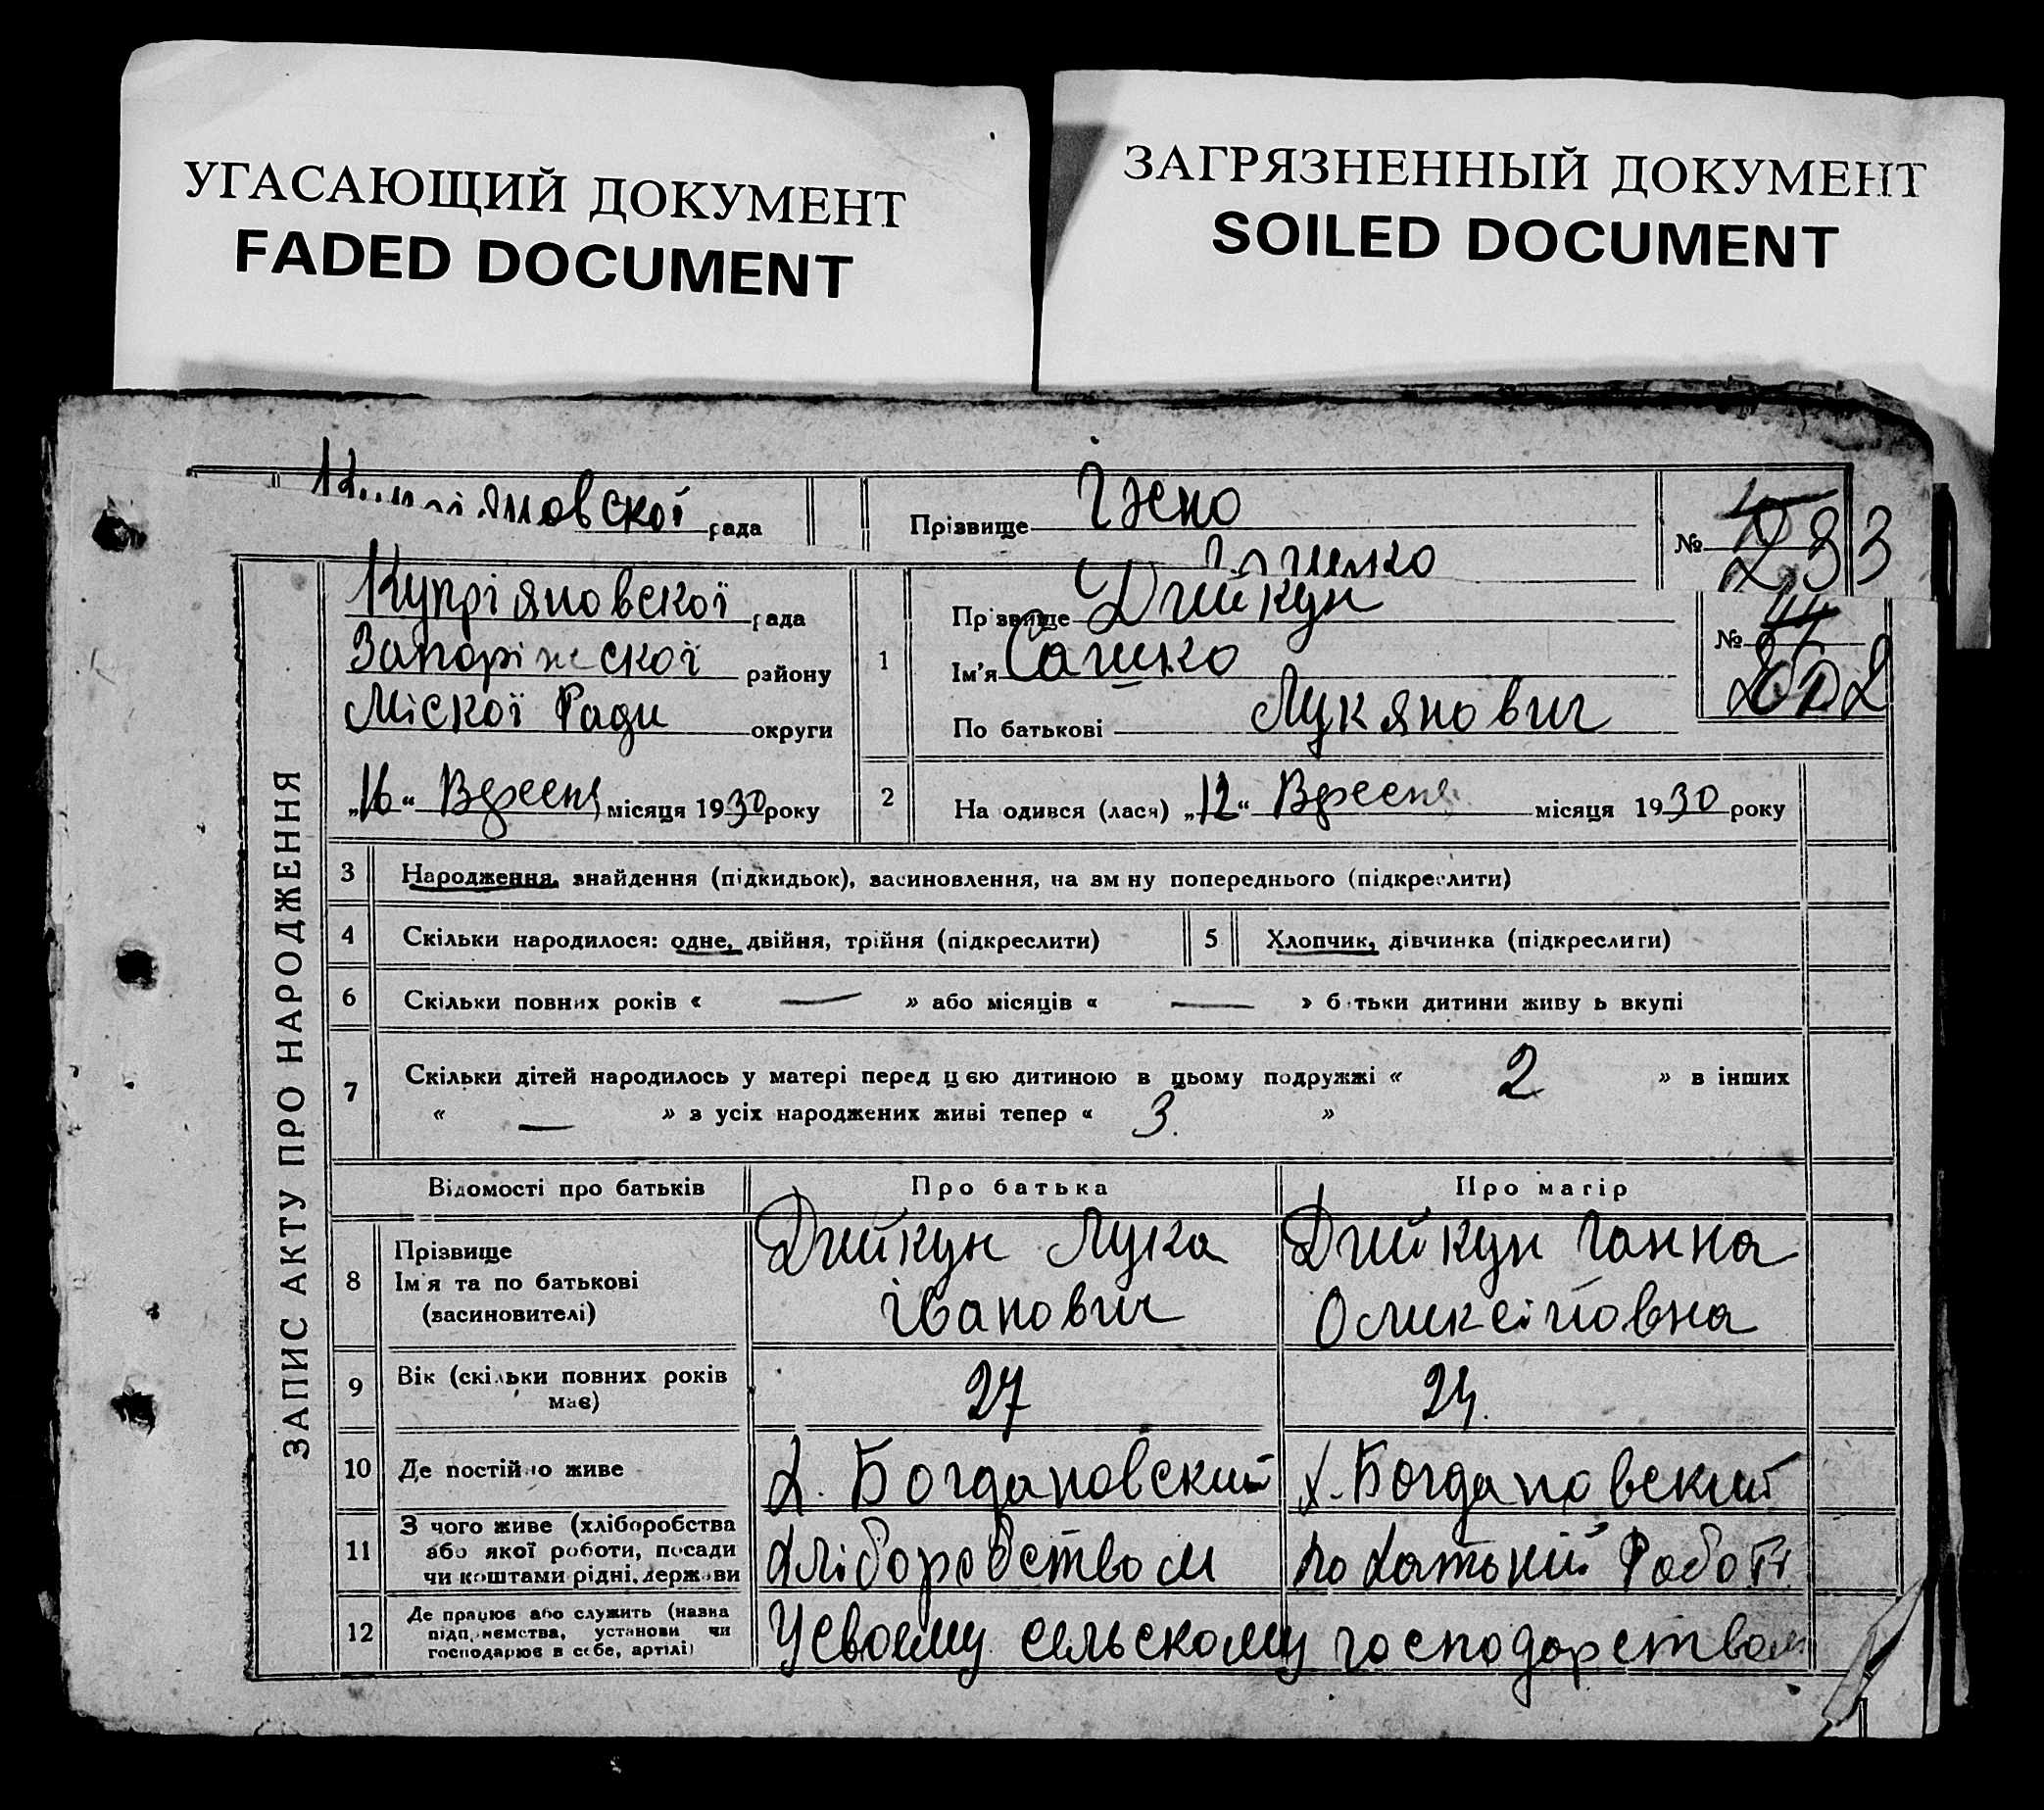 УГАСАЮЩИЙ ДОКУМЕНТ
FADED DOCUMENT
ЗАГРЯЗНЕННЫЙ ДОКУМЕНТ
SOILED DOCUMENT
рада
Прізвище
№ 283
ЗАПИС АКТУ ПРО НАРОДЖЕННЯ
Купріяновскої рада
Запоріжскої району
Міскої Ради округи
„16“ Вресня місяця 1930 року
1
Прізвище Дтйкун
Ім'я Сашко
По батькові Лукянович
№
2
На одився (лася) „12“ Вресня місяця 1930 року
3 Народження, знайдення (підкидьок), засиновлення, на зм ну попереднього (підкреслити)
4 Скільки народилося: одне, двійня, трійня (підкреслити)
5 Хлопчик, дівчинка (підкреслити)
6 Скільки повних років « — » або місяців « — » б тьки дитини живу ь вкупі
7 Скільки дітей народилось у матері перед цією дитиною в цьому подружжі « 2 » в інших
« — » з усіх народжених живі тепер « 3. »
Відомості про батьків Про батька Про матір
8 Прізвище
Ім'я та по батькові
(засиновителі)
Дтйкун Лука
Іванович
Дтйкун Ганна
Оликсіівовна
9 Вік (скільки повних років
має)
27
24.
10 Де постійно живе х. Богдановский х. Богдановский
11 З чого живе (хліборобства
або якої роботи, посади
чи коштами рідні, держави
хліборобством
по хатький Роботі
12 Де працює або служить (назва
підприємства, установи чи
господарює в себе, артілі)
Усвоему сельскому господарством